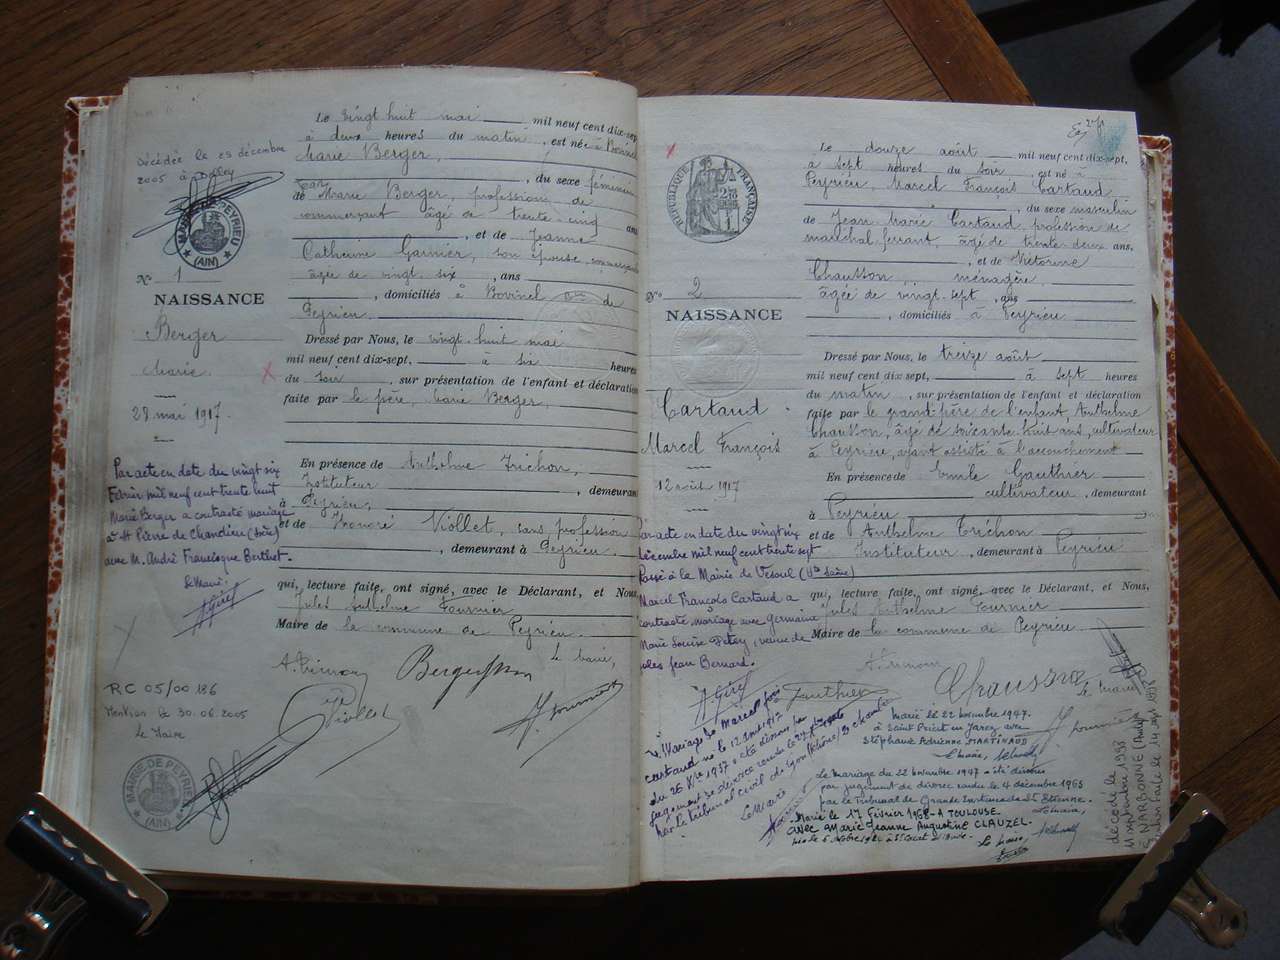 Décédée le 25 décembre
2005 à
MAIRIE DE PEYRIEU
(AIN)
N° 1
NAISSANCE
Berger
Marie
28 mai 1917.
Par acte en date du vingt six
Février mil neuf cent trente huit
Marie Berger a contracté mariage
à St Pierre de Chandieu (Isère)
avec M. André Francisque Berthet.
Le Maire:
RC 05/00 186
Mention le 30.06.2005
Le Maire
MAIRIE DE PEYRIEU
(AIN)
Le vingt huit mai mil neuf cent dix-sept
à deux heures du matin, est née à Bovinel
Marie Berger,
, du sexe féminin
de Jean Marie Berger, profession de
commerçant âgé de trente-cinq ans
, et de Jeanne
Catherine Garnier, son épouse, commerçante
âgée de vingt six, ans
, domiciliés à Bovinel, cne de
Peyrieu.
Dressé par Nous, le vingt-huit mai
mil neuf cent dix-sept, à six heures
du soir, sur présentation de l'enfant et déclaration
faite par le père, Marie Berger,
En présence de Anthelme Trichon,
Instituteur, demeurant
à Peyrieu,
et de Honoré Viollet, sans profession
, demeurant à Peyrieu
qui, lecture faite, ont signé, avec le Déclarant, et Nous,
Jules Anthelme Fournier
Maire de la commune de Peyrieu.
Le Maire,
Viollet
Fournier
271
RÉPUBLIQUE FRANÇAISE
N° 2
NAISSANCE
Cartaud
Marcel François
12 août 1917
Par acte en date du vingt six
décembre mil neuf cent trente sept
Passé à la Mairie de Vesoul (Hte Saône)
Marcel François Cartaud a
contracté mariage avec Germaine
Marie Louise, veuve de
Jules Jean Bernard.
Le douze août mil neuf cent dix-sept,
à sept heures du soir, est né à
Peyrieu, Marcel François Cartaud
, du sexe masculin
de Jean-Marie Cartaud, profession de
maréchal-ferrant, âgé de trente-deux ans,
, et de Victorine
Chausson, ménagère
âgée de vingt-sept, ans
, domiciliés à Peyrieu
Dressé par Nous, le treize août
mil neuf cent dix-sept, à sept heures
du matin, sur présentation de l'enfant et déclaration
faite par le grand-père de l'enfant, Anthelme
Chausson, âgé de soixante-huit ans, cultivateur
à Peyrieu, ayant assisté à l'accouchement
En présence de Emile Gauthier
cultivateur, demeurant
à Peyrieu
et de Anthelme Tréchon
Instituteur, demeurant à Peyrieu
qui, lecture faite, ont signé, avec le Déclarant, et Nous,
Jules Anthelme Fournier
Maire de la commune de Peyrieu.
Gauthier
Chausson
Le Maire
Fournier
Le Mariage de Marcel François
Cartaud né le 12 Août 1917
du 26 Xbre 1937 a été dissous par
jugement de divorce rendu le 27
par le tribunal civil de Lyon (Rhône) 3e chambre
Le Maire
Marié le 22 novembre 1947.
à Saint Priest en Jarez avec
Stéphanie Adrienne MARTINAUD
Le Maire,
Le mariage du 22 novembre 1947 a été dissous
par jugement de divorce rendu le 4 décembre 1963
par le Tribunal de Grande Instance de St Etienne.
Le Maire,
Marié le 17 Février 1968 - A TOULOUSE
avec Marie Jeanne Augustine CLAUZEL.
Le Maire,
décédé le
11 septembre 1998
à NARBONNE (Aude)